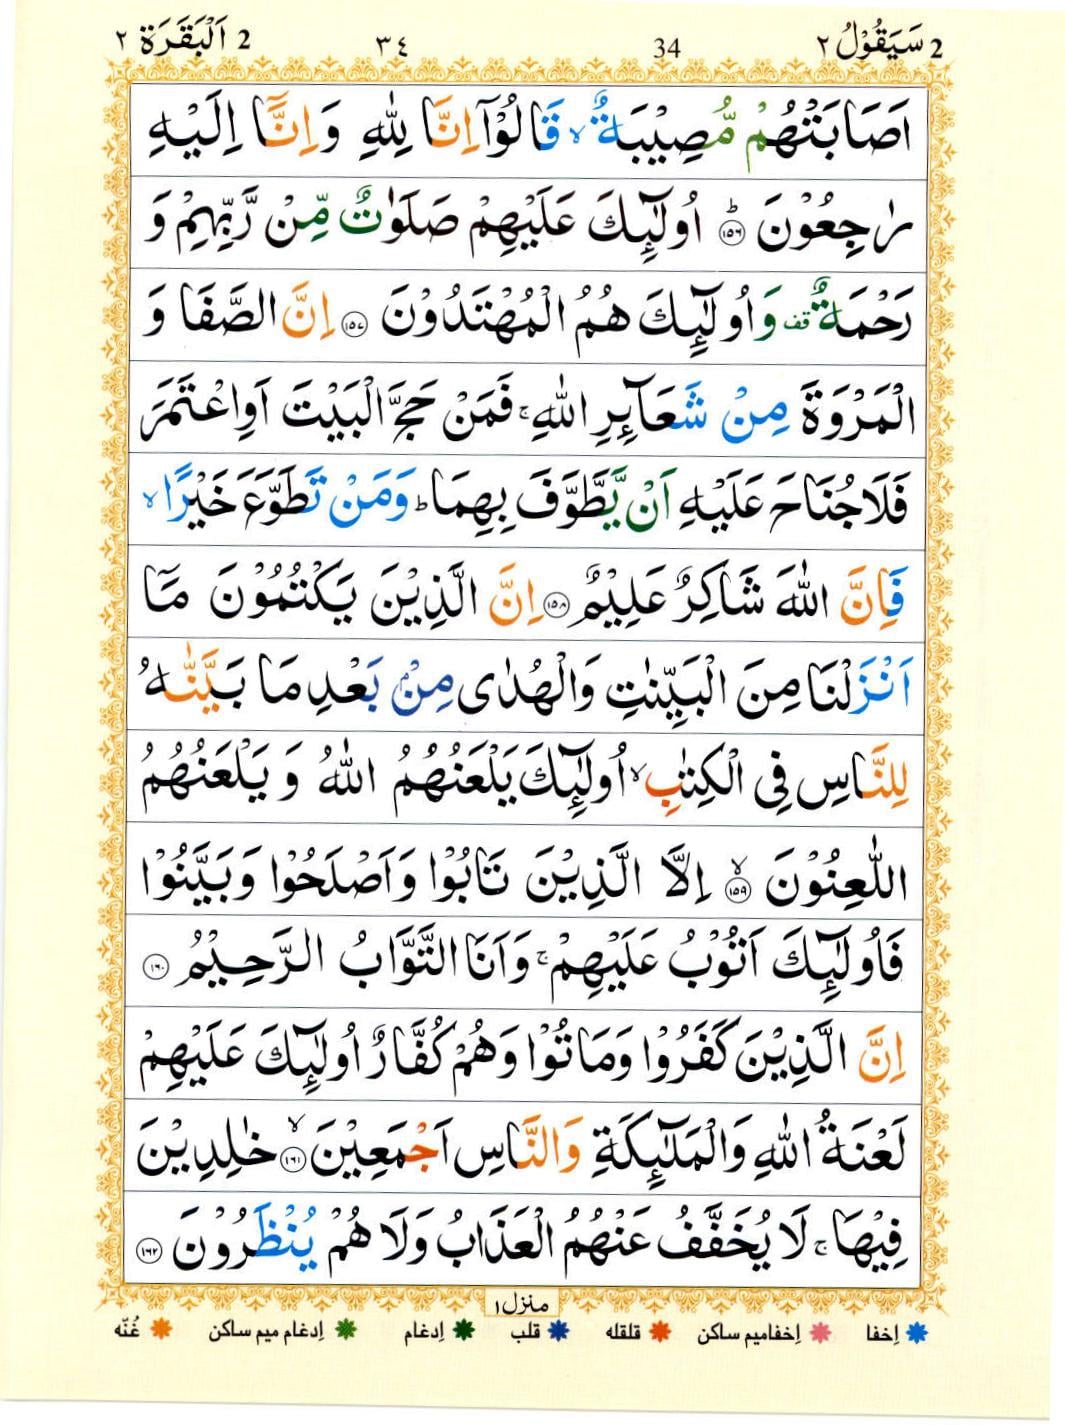 2 سَيَقُوْلُ ٢ 34 ٣٤ 2 اَلْبَقَرَة ٢
اَصَابَتْهُمْ مُّصِيْبَةٌ ۙ قَالُوْٓا اِنَّا لِلّٰهِ وَ اِنَّآ اِلَيْهِ
رٰجِعُوْنَ ؕ ﴿۱۵۶﴾ اُولٰٓئِكَ عَلَيْهِمْ صَلَوٰتٌ مِّنْ رَّبِّهِمْ وَ
رَحْمَةٌ ۫ وَ اُولٰٓئِكَ هُمُ الْمُهْتَدُوْنَ ﴿۱۵۷﴾ اِنَّ الصَّفَا وَ
الْمَرْوَةَ مِنْ شَعَآئِرِ اللّٰهِ ۚ فَمَنْ حَجَّ الْبَيْتَ اَوِ اعْتَمَرَ
فَلَا جُنَاحَ عَلَيْهِ اَنْ يَّطَّوَّفَ بِهِمَا ؕ وَمَنْ تَطَوَّعَ خَيْرًا ۙ
فَاِنَّ اللّٰهَ شَاكِرٌ عَلِيْمٌ ﴿۱۵۸﴾ اِنَّ الَّذِيْنَ يَكْتُمُوْنَ مَآ
اَنْزَلْنَا مِنَ الْبَيِّنٰتِ وَالْهُدٰى مِنْۢ بَعْدِ مَا بَيَّنّٰهُ
لِلنَّاسِ فِى الْكِتٰبِ ۙ اُولٰٓئِكَ يَلْعَنُهُمُ اللّٰهُ وَ يَلْعَنُهُمُ
اللّٰعِنُوْنَ ۙ ﴿۱۵۹﴾ اِلَّا الَّذِيْنَ تَابُوْا وَاَصْلَحُوْا وَبَيَّنُوْا
فَاُولٰٓئِكَ اَتُوْبُ عَلَيْهِمْ ۚ وَاَنَا التَّوَّابُ الرَّحِيْمُ ﴿۱۶۰﴾
اِنَّ الَّذِيْنَ كَفَرُوْا وَمَاتُوْا وَهُمْ كُفَّارٌ اُولٰٓئِكَ عَلَيْهِمْ
لَعْنَةُ اللّٰهِ وَالْمَلٰٓئِكَةِ وَالنَّاسِ اَجْمَعِيْنَ ۙ ﴿۱۶۱﴾ خٰلِدِيْنَ
فِيْهَا ۚ لَا يُخَفَّفُ عَنْهُمُ الْعَذَابُ وَلَا هُمْ يُنْظَرُوْنَ ﴿۱۶۲﴾
منزل ۱
اِخفا اِخفامیم ساکن قلقله قلب اِدغام اِدغام میم ساکن غُنّه